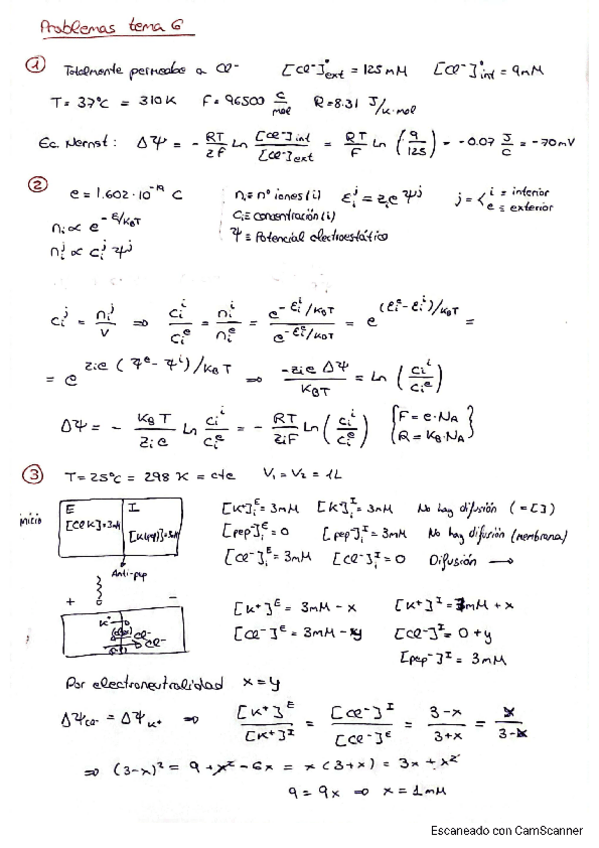 Problemas tema 6
① Totalmente permeable a Cl⁻ [Cl⁻]°ext = 125 mM [Cl⁻]°int = 9 mM
T = 37°C = 310 K F = 96500 C/mol R = 8.31 J/K·mol
Ec. Nernst: ΔΨ = - RT/ZF Ln [Cl⁻]int/[Cl⁻]ext = RT/F Ln (9/125) = -0.07 J/C = -70 mV
② e = 1.602·10⁻¹⁹ C nᵢ ≡ nº iones (i) εᵢʲ = zᵢe Ψʲ j = < i ≡ interior
e ≡ exterior
nᵢ ∝ e^(-E/K_BT) Cᵢ ≡ concentración (i)
nᵢʲ ∝ cᵢʲ Ψʲ Ψ ≡ Potencial electroestático
cᵢʲ = nᵢʲ/V ⇒ cᵢⁱ/cᵢᵉ = nᵢⁱ/nᵢᵉ = e^(-εᵢⁱ/K_BT)/e^(-εᵢᵉ/K_BT) = e^((εᵢᵉ-εᵢⁱ)/K_BT) =
= e^(zᵢe (Ψᵉ-Ψⁱ)/K_BT) ⇒ -zᵢe ΔΨ/K_BT = Ln (cᵢⁱ/cᵢᵉ)
ΔΨ = - K_BT/zᵢe Ln cᵢⁱ/cᵢᵉ = - RT/zᵢF Ln (cᵢⁱ/cᵢᵉ) [F = e·N_A
R = K_B·N_A]
③ T = 25°C = 298 K = cte V₁ = V₂ = 1L
inicio E I [K⁺]ᵢᴱ = 3mM [K⁺]ᵢᴵ = 3mM No hay difusión (= [ ])
[ClK] = 3mM [K(pep)] = 3mM [pep⁻]ᵢᴱ = 0 [pep⁻]ᵢᴵ = 3mM No hay difusión (membrana)
[Cl⁻]ᵢᴱ = 3mM [Cl⁻]ᵢᴵ = 0 Difusión →
Anti-pep
+ - [K⁺]ᴱ = 3mM - x [K⁺]ᴵ = 3mM + x
K⁺ Cl⁻ Cl⁻ [Cl⁻]ᴱ = 3mM - y [Cl⁻]ᴵ = 0 + y
[pep⁻]ᴵ = 3mM
Por electroneutralidad x = y
ΔΨCl⁻ = ΔΨK⁺ ⇒ [K⁺]ᴱ/[K⁺]ᴵ = [Cl⁻]ᴵ/[Cl⁻]ᴱ = 3-x/3+x = x/3-x
⇒ (3-x)² = 9 + x² - 6x = x (3+x) = 3x + x²
9 = 9x ⇒ x = 1 mM
Escaneado con CamScanner